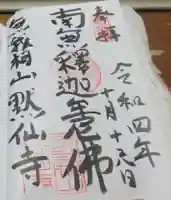 奉拝
令和四年
十月十日
南無釋迦牟尼佛
山默仙寺